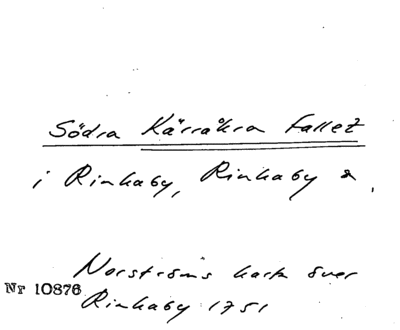 Södra Kärråkra fallet
i Rinkaby, Rinkaby s
Norströms karta över
Nr 10876
Rinkaby 1751